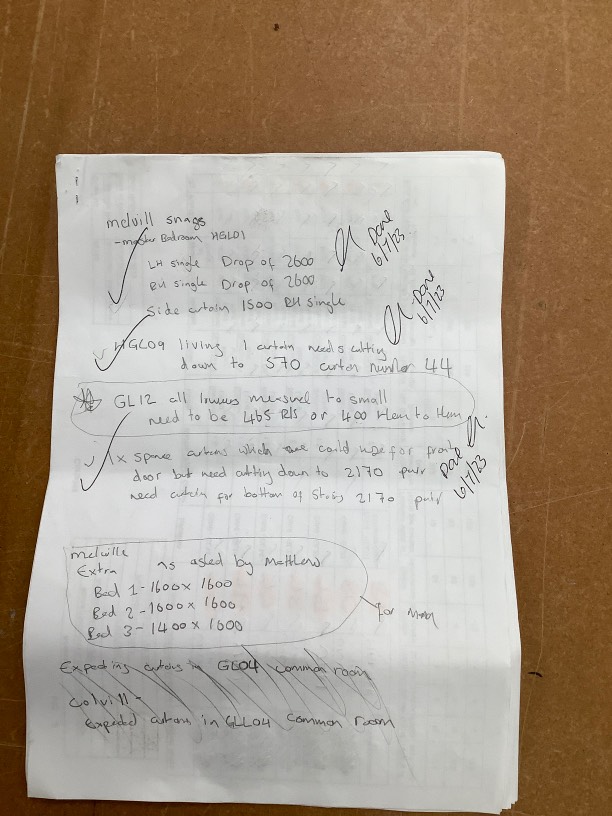 melvill snags
- master Bedroom HGL01
LH single Drop of 2600
RH single Drop of 2600
Side curtain 1500 RH single
Done
6/7/23
HGL09 living 1 curtain needs cutting
down to 570 curtain number 44
Done
6/7/23
GL12 all linings measured to small
need to be 465 R/S or 400 Hem to Hem
1x spare curtains which we could use for front
door but need cutting down to 2170 pair
need curtain for bottom of stairs 2170 pair
Done
6/7/23
melville
Extra as asked by Matthew
Bed 1 - 1600 x 1600
Bed 2 - 1600 x 1600
Bed 3 - 1400 x 1600
for
Expecting curtains in GL04 common room
Colvill -
Expected curtains in GLL04 common room